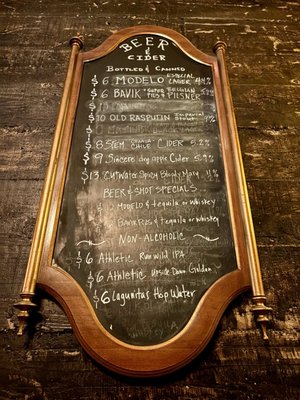 BEER
&
CIDER
Bottled & Canned
$6 MODELO ESPECIAL LAGER 4.4%
$6 BAVIK "SUPER" BELGIAN PILSNER 5.2%
$10 OLD RASPUTIN Imperial Stout 9%
$8 STEM CHILE CIDER 5.2%
$9 Sincere dry apple Cider 5.9%
$13 CUTWATER Spicy Bloody Mary 11%
BEER & SHOT SPECIALS
MODELO & tequila or whiskey
BAVIK PILS & tequila or whiskey
NON-ALCOHOLIC
$6 Athletic Run Wild IPA
$6 Athletic Upside Dawn Golden
$6 Lagunitas Hop Water